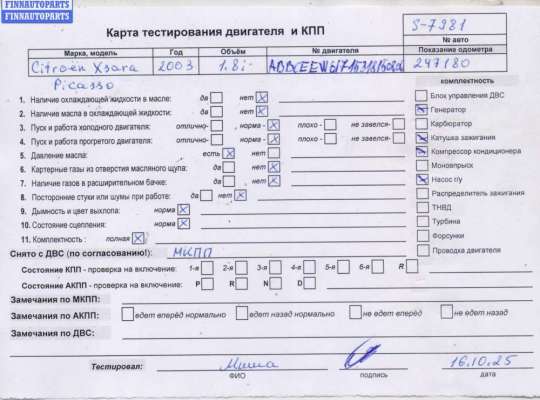 FINNAUTOPARTS
FINNAUTOPARTS
Карта тестирования двигателя и КПП
S-7981
№ авто
Марка, модель Год Объём № двигателя Показание одометра
Citroën Xsara 2003 1.8i 247180
Picasso
комплектность
1. Наличие охлаждающей жидкости в масле: да нет
2. Наличие масла в охлаждающей жидкости: да нет
3. Пуск и работа холодного двигателя: отлично- норма - плохо - не завелся-
4. Пуск и работа прогретого двигателя: отлично- норма - плохо - не завелся-
5. Давление масла: есть нет
6. Картерные газы из отверстия масляного щупа: да нет
7. Наличие газов в расширительном бачке: да нет
8. Посторонние стуки или шумы при работе: да нет
9. Дымность и цвет выхлопа: норма
10. Состояние сцепления: норма
11. Комплектность : полная
Блок управления ДВС
Генератор
Карбюратор
Катушка зажигания
Компрессор кондиционера
Моновпрыск
Насос г/у
Распределитель зажигания
ТНВД
Турбина
Форсунки
Проводка двигателя
Снято с ДВС (по согласованию!): МКПП
Состояние КПП - проверка на включение: 1-я 2-я 3-я 4-я 5-я 6-я R
Состояние АКПП - проверка на включение: P R N D
Замечания по МКПП:
Замечания по АКПП: едет вперёд нормально едет назад нормально не едет вперёд не едет назад
Замечания по ДВС:
Тестировал: Миша 16.10.25
ФИО подпись дата